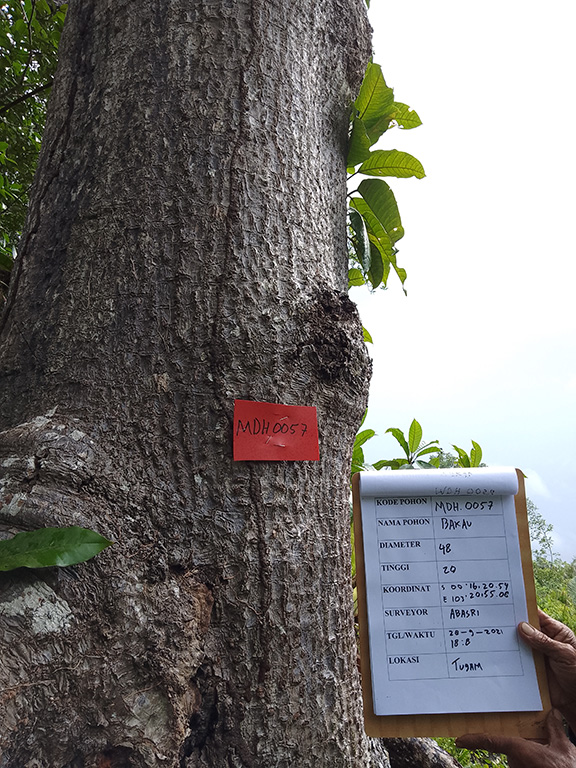 MDH 0057
KODE POHON MDH. 0057
NAMA POHON BAKAU
DIAMETER 48
TINGGI 20
KOORDINAT S 00°.16.20.59
E 103°.20.55.08
SURVEYOR ABASRI
TGL/WAKTU 20-9-2021
LOKASI TUGAM